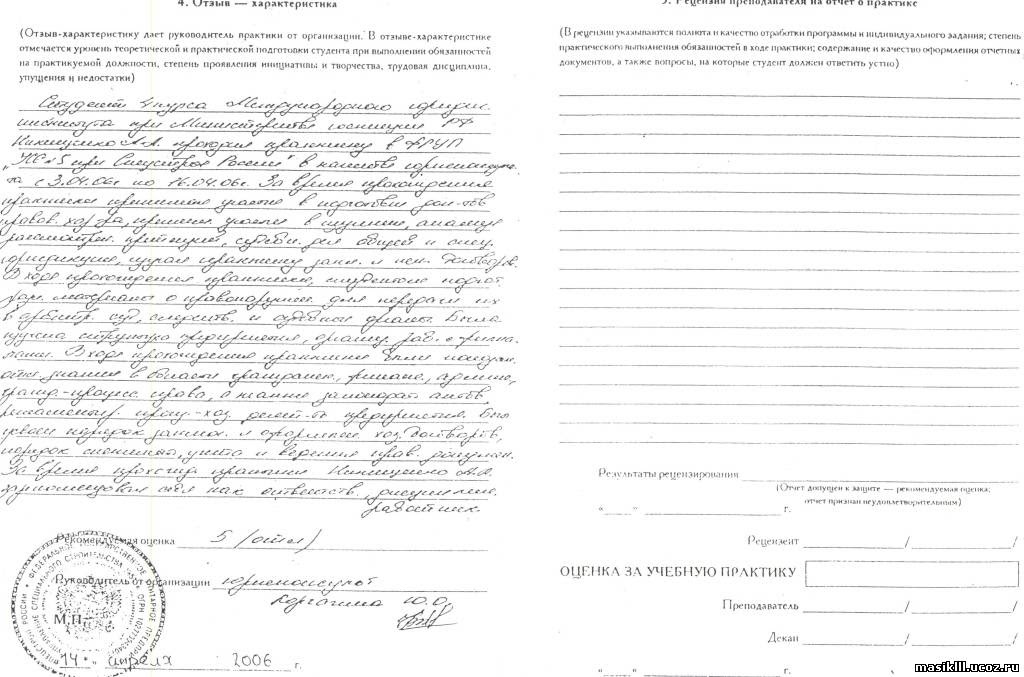 4. Отзыв — характеристика
(Отзыв-характеристику дает руководитель практики от организации. В отзыве-характеристике
отмечается уровень теоретической и практической подготовки студента при выполнении обязанностей
на практикуемой должности, степень проявления инициативы и творчества, трудовая дисциплина,
упущения и недостатки)
Студент 4 курса Международного юридич.
института при Министерстве юстиции РФ
проходил практику в ФГУП
при Спецстрое России" в качестве юрисконсуль-
та с 3.04.06г по 16.04.06г. За время прохождения
практики принимал участие в подготовке док-тов
правов. хар-ра, принял участие в изучении, анализе
рассмотрен. претензий, судебн. дел общей и спец.
юрисдикции, изучал практику закл. и исп. договоров.
В ходе прохождения практики, студентом подгот.
материалы о правонарушен. для передачи их
в арбитр. суд, следств. и судебные органы. Была
изучена структура предприятия,
В ходе прохождения практики были показа
знания в области граждан., финанс.,
гражд.-процесс. права, а также законодат. актов,
регламентир. произ.-хоз. деят-ть предприятия. Был
освоен порядок заключ. и оформлен. хоз. договоров,
порядок учета и ведения прав. докумен.
За время прохожд. практики
зарекомендовал себя как ответств., дисциплин.
работник.
Рекомендуемая оценка 5 (отл)
Руководитель от организации юрисконсульт
Ю.О.
М.П.
"14" апреля 2006 г.
5. Рецензия преподавателя на отчет о практике
(В рецензии указываются полнота и качество отработки программы и индивидуального задания; степень
практического выполнения обязанностей в ходе практики; содержание и качество оформления отчетных
документов, а также вопросы, на которые студент должен ответить устно)
Результаты рецензирования
(Отчет допущен к защите — рекомендуемая оценка;
отчет признан неудовлетворительным)
"___" г.
Рецензент / /
ОЦЕНКА ЗА УЧЕБНУЮ ПРАКТИКУ
Преподаватель / /
Декан / /
"___" г.
masikll.ucoz.ru